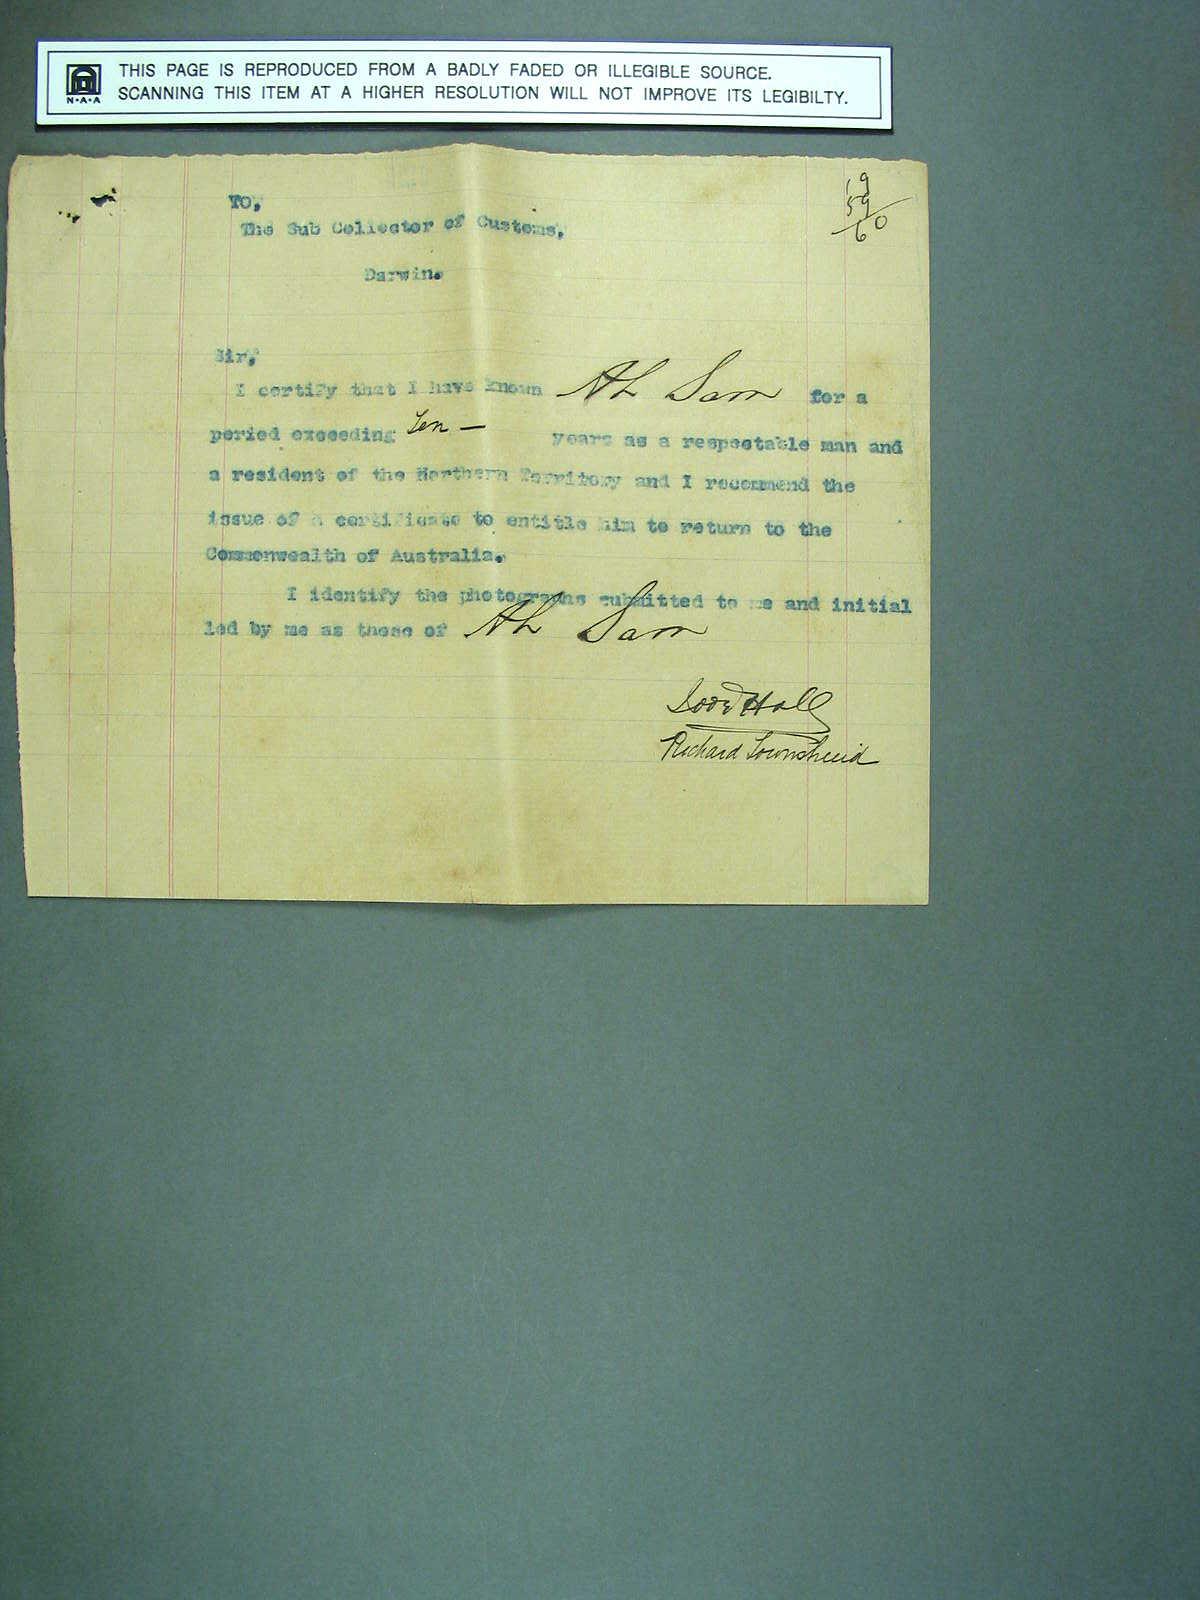 THIS PAGE IS REPRODUCED FROM A BADLY FADED OR ILLEGIBLE SOURCE.
N·A·A
SCANNING THIS ITEM AT A HIGHER RESOLUTION WILL NOT IMPROVE ITS LEGIBILTY.
19
59
60
TO,
The Sub Collector of Customs,
Darwin.
Sir,
I certify that I have known Ah Sam for a
period exceeding Ten — years as a respectable man and
a resident of the Northern Territory and I recommend the
issue of a certificate to entitle him to return to the
Commonwealth of Australia.
I identify the photographs submitted to me and initial
led by me as those of Ah Sam
Hall
Richard Townshend